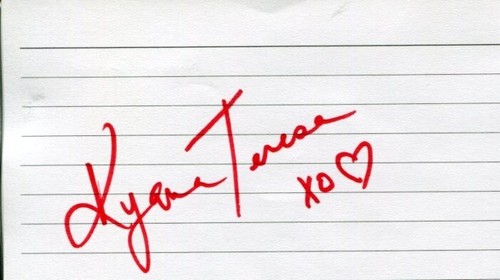 Kyana Teresa
XO♡